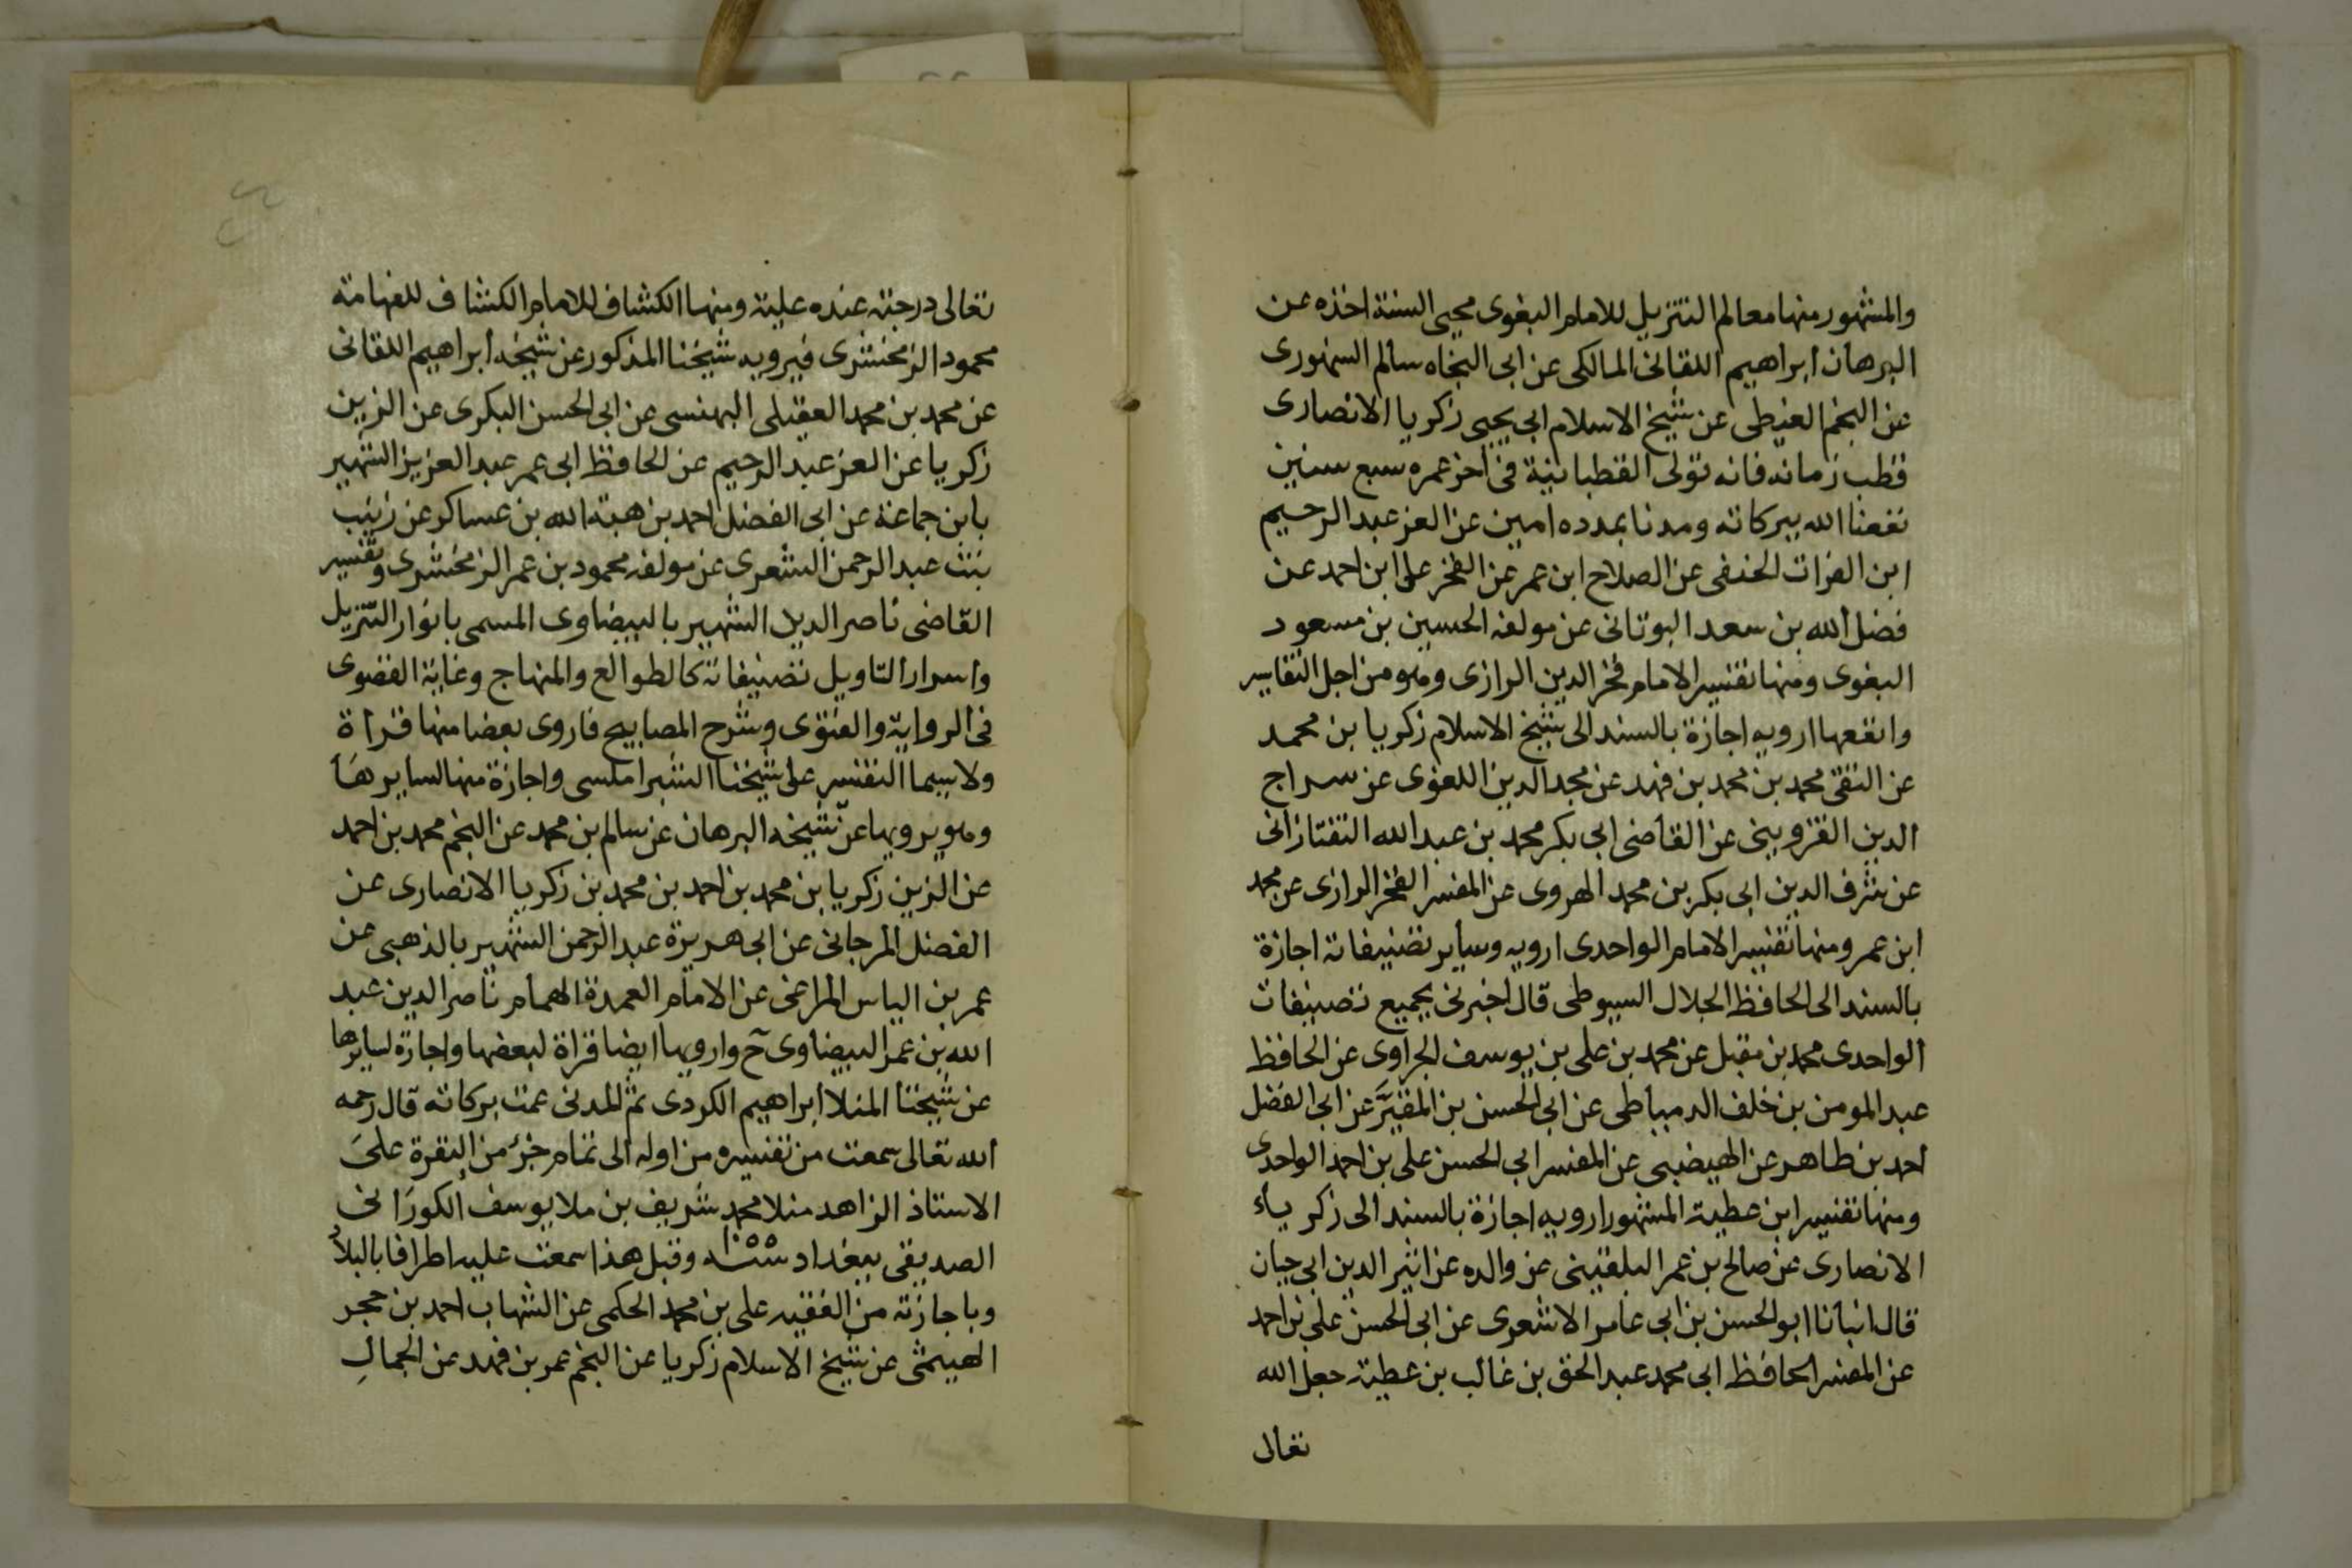 والمشهور منها معالم التنزيل للامام البغوى محيى السنة اخذه عن
البرهان ابراهيم اللقانى المالكى عن ابى النجاه سالم السنهورى
عن النجم الغيطى عن شيخ الاسلام ابى يحيى زكريا الانصارى
قطب زمانه فانه تولى القطبانية فى اخر عمره سبع سنين
نفعنا الله ببركاته ومدنا بمدده امين عن العز عبد الرحيم
ابن الفرات الحنفى عن الصلاح ابن عمر عن الفخر على ابن احمد عن
فضل الله بن سعد البوتانى عن مولفه الحسين بن مسعود
البغوى ومنها تفسير الامام فخر الدين الرازى وهو من اجل التفاسير
وانفعها ارويه اجازة بالسند الى شيخ الاسلام زكريا بن محمد
عن التقى محمد بن محمد بن فهد عن مجد الدين اللغوى عن سراج
الدين القزوينى عن القاضى ابى بكر محمد بن عبد الله التفتازانى
عن شرف الدين ابى بكر بن محمد الهروى عن المفسر الفخر الرازى عن محمد
ابن عمر ومنها تفسير الامام الواحدى ارويه وساير تصنيفاته اجازة
بالسند الى الحافظ الجلال السيوطى قال اخبرنى بجميع تصنيفات
الواحدى محمد بن مقبل عن محمد بن على بن يوسف الجراوى عن الحافظ
عبد المومن بن خلف الدمياطى عن ابى الحسن بن المقيَّر عن ابى الفضل
احمد بن طاهر عن الهيضبى عن المفسر ابى الحسن على بن احمد الواحدى
ومنها تفسير ابن عطية المشهور ارويه اجازة بالسند الى زكرياء
الانصارى عن صالح بن عمر البلقينى عن والده عن اثير الدين ابى حيان
قال انبأنا ابو الحسن بن ابى عامر الاشعرى عن ابى الحسن على بن احمد
عن المفسر الحافظ ابى محمد عبد الحق بن غالب بن عطية جعل الله
تعالى
تعالى درجته عنده علية ومنها الكشاف للامام الكشاف للفهامة
محمود الزمخشرى فيرويه شيخنا المذكور عن شيخه ابراهيم اللقانى
عن محمد بن محمد العقيلى البهنسى عن ابى الحسن البكرى عن الزين
زكريا عن العز عبد الرحيم عن الحافظ ابى عمر عبد العزيز الشهير
بابن جماعة عن ابى الفضل احمد بن هبة الله بن عساكر عن زينب
بنت عبد الرحمن الشعرى عن مولفه محمود بن عمر الزمخشرى وتفسير
القاضى ناصر الدين الشهير بالبيضاوى المسمى بانوار التنزيل
واسرار التاويل تصنيفاته كالطوالع والمنهاج وغاية القصوى
فى الرواية والفتوى وشرح المصابيح فاروى بعضا منها قراة
ولا سيما التفسير على شيخنا الشبراملسى واجازة منها لسايرها
وهو يرويها عن شيخه البرهان عن سالم بن محمد عن النجم محمد بن احمد
عن الزين زكريا بن محمد بن احمد بن محمد بن زكريا الانصارى عن
الفضل المرجانى عن ابى هريرة عبد الرحمن الشهير بالذهبى عن
عمر بن الياس المراغى عن الامام العمدة الهمام ناصر الدين عبد
الله بن عمر البيضاوى ح وارويها ايضا قراة لبعضها واجازة لسايرها
عن شيخنا المنلا ابراهيم الكردى ثم المدنى عمت بركاته قال رحمه
الله تعالى سمعت من تفسيره من اوله الى تمام جزء من البقرة على
الاستاذ الزاهد منلا محمد شريف بن ملا يوسف الكورانى
الصديقى ببغداد سنة ١٠٥٥ وقبل هذا سمعت عليه اطرافا بالبلاد
وباجازته من الفقيه على بن محمد الحكمى عن الشهاب احمد بن حجر
الهيثمى عن شيخ الاسلام زكريا عن النجم عمر بن فهد عن الجمال